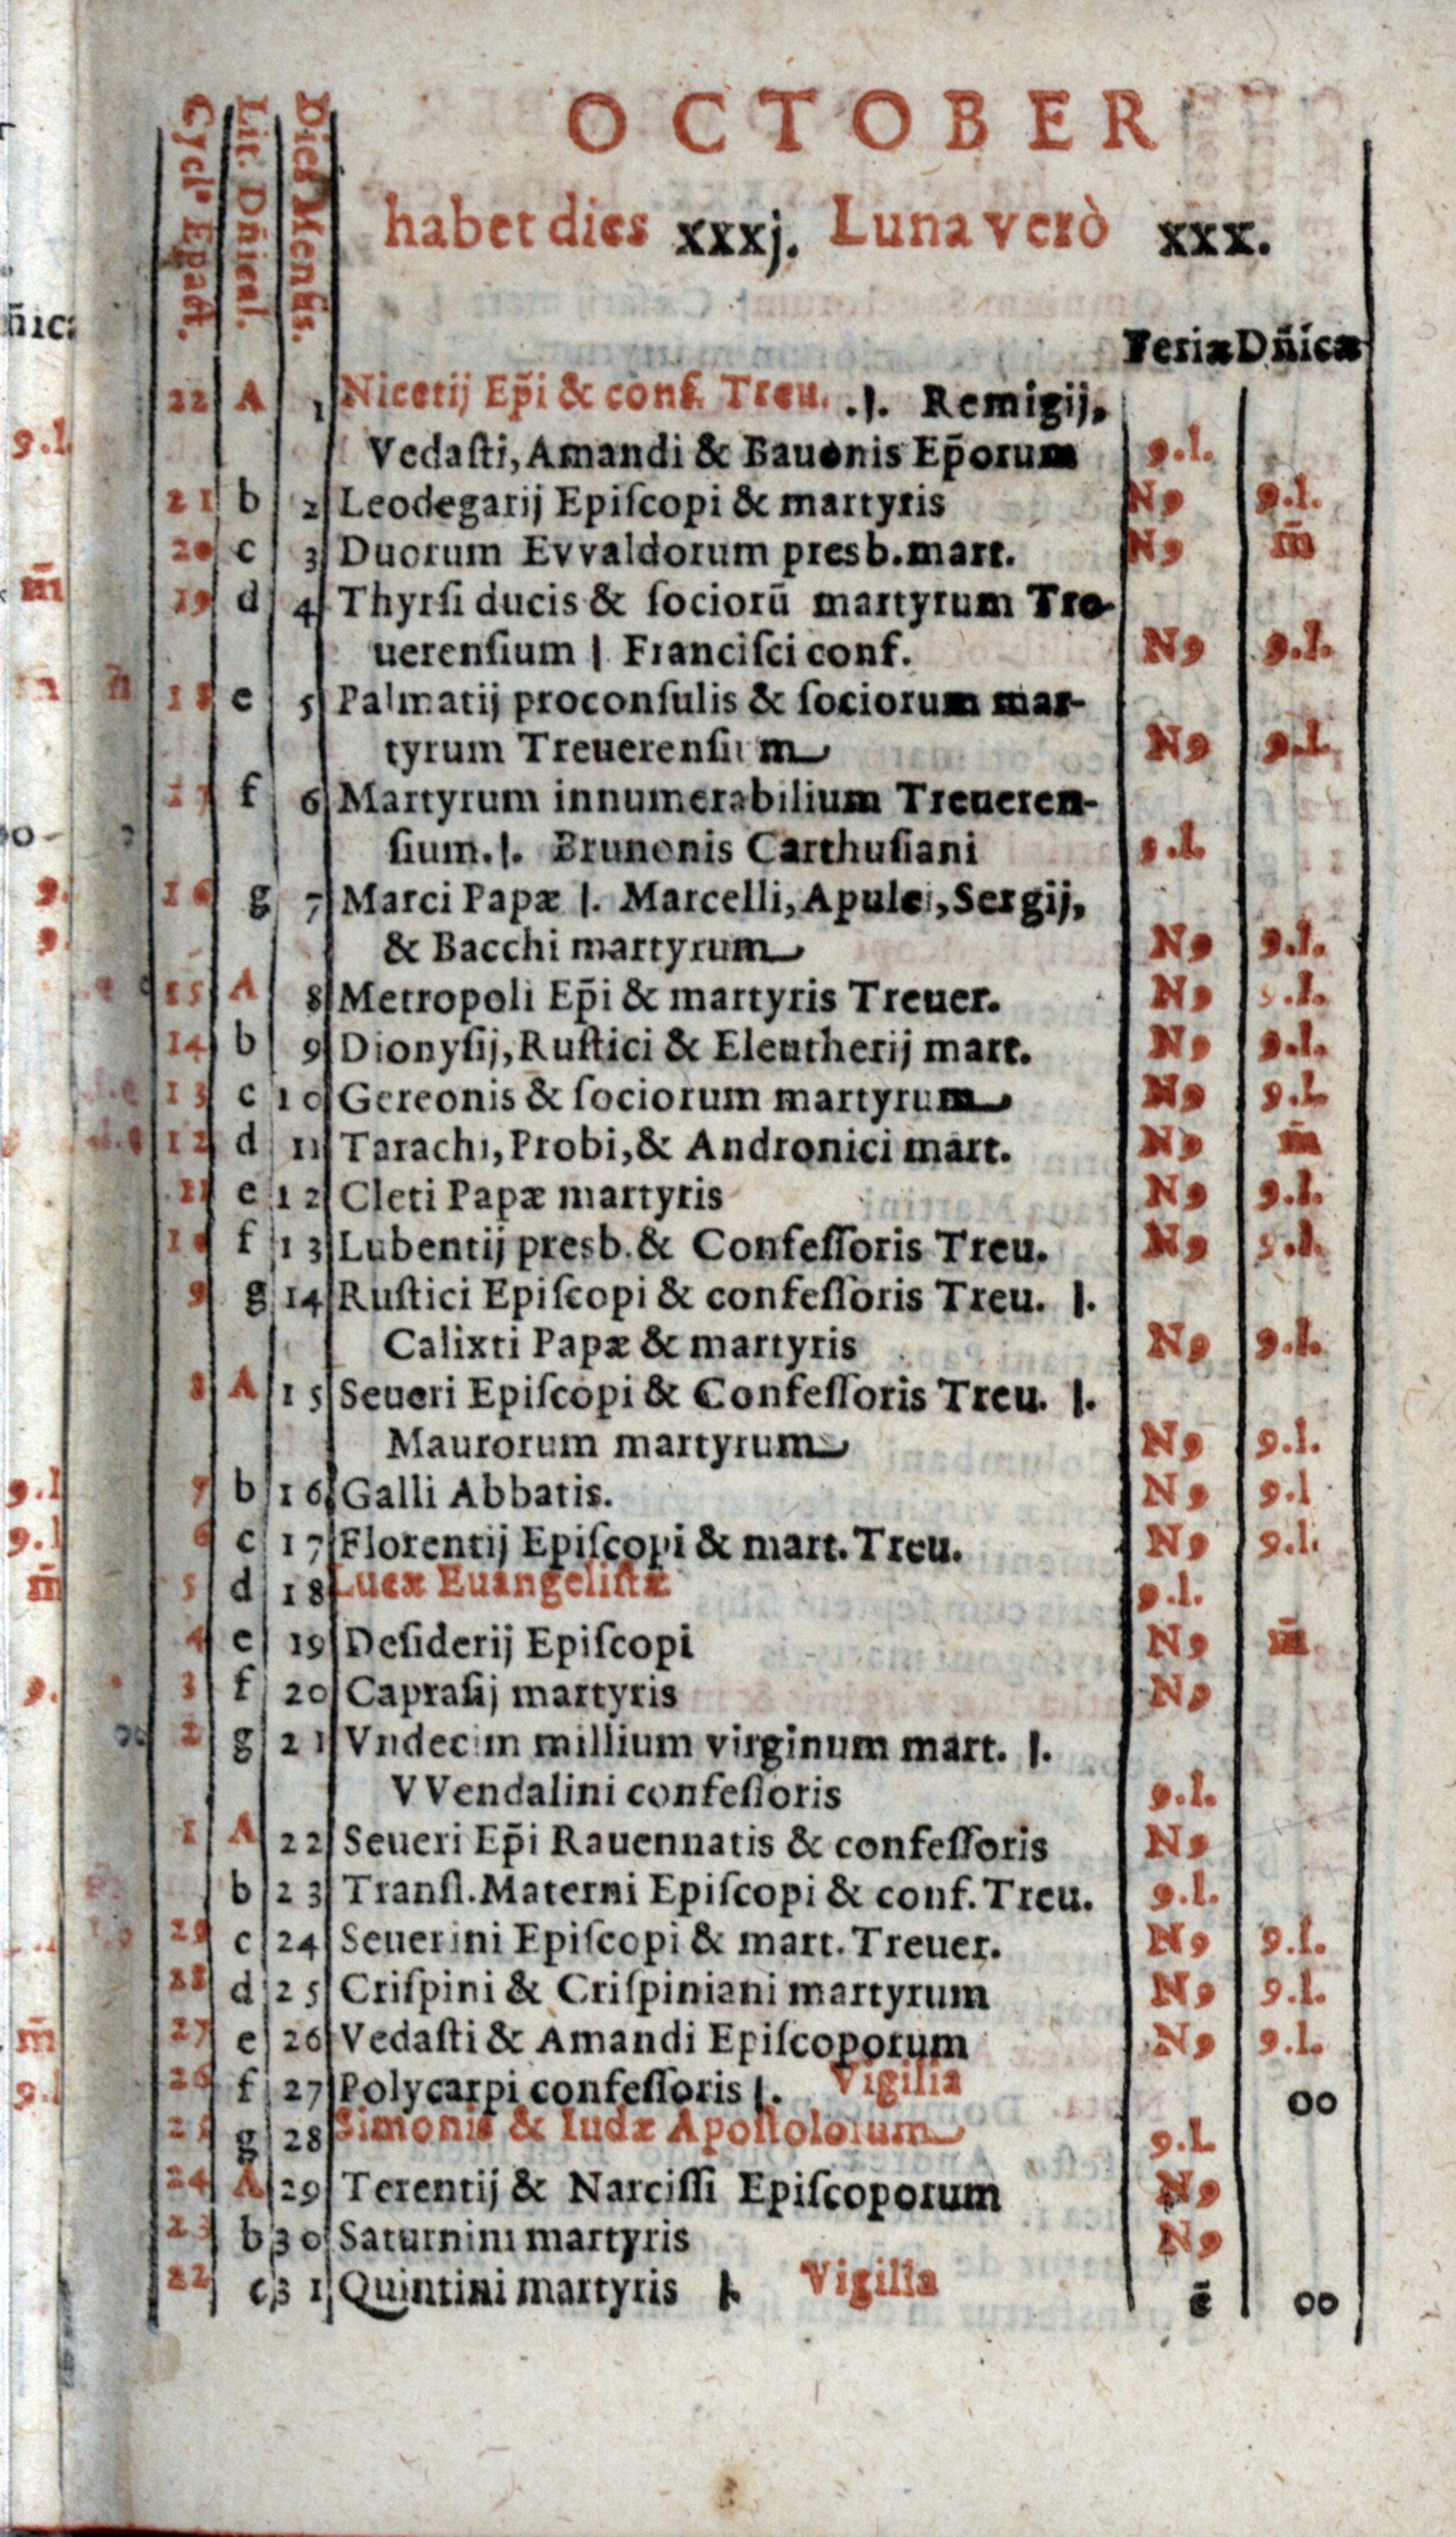 OCTOBER
habet dies xxxj. Luna verò xxx.
Cycl⁹ Epact.
Lit. Dñical.
Dies Mensis.
Feriæ Dñicæ
22 A 1 Nicetij Ep̃i & conf. Treu. .|. Remigij,
Vedaſti, Amandi & Bauonis Ep̃orum 9.l.
21 b 2 Leodegarij Epiſcopi & martyris N9 9.l.
20 c 3 Duorum Evvaldorum presb. mart. N9 m̄
19 d 4 Thyrſi ducis & ſociorū martyrum Tre-
uerenſium | Franciſci conf. N9 9.l.
18 e 5 Palmatij proconſulis & ſociorum mar-
tyrum Treuerenſium N9 9.l.
17 f 6 Martyrum innumerabilium Treueren-
ſium. |. Brunonis Carthuſiani 9.l.
16 g 7 Marci Papæ |. Marcelli, Apulei, Sergij,
& Bacchi martyrum N9 9.l.
15 A 8 Metropoli Ep̃i & martyris Treuer. N9 9.l.
14 b 9 Dionyſij, Ruſtici & Eleutherij mart. N9 9.l.
13 c 10 Gereonis & ſociorum martyrum N9 9.l.
12 d 11 Tarachi, Probi, & Andronici mart. N9 m̄
11 e 12 Cleti Papæ martyris N9 9.l.
10 f 13 Lubentij presb. & Confeſſoris Treu. N9 9.l.
9 g 14 Ruſtici Epiſcopi & confeſſoris Treu. |.
Calixti Papæ & martyris N9 9.l.
8 A 15 Seueri Epiſcopi & Confeſſoris Treu. |.
Maurorum martyrum N9 9.l.
7 b 16 Galli Abbatis. N9 9.l
6 c 17 Florentij Epiſcopi & mart. Treu. N9 9.l.
5 d 18 Lucæ Euangeliſtæ 9.l.
4 e 19 Deſiderij Epiſcopi N9 m̄
3 f 20 Capraſij martyris N9
2 g 21 Vndecim millium virginum mart. |.
VVendalini confeſſoris 9.l.
1 A 22 Seueri Ep̃i Rauennatis & confeſſoris N9
b 23 Tranſl. Materni Epiſcopi & conf. Treu. 9.l.
29 c 24 Seuerini Epiſcopi & mart. Treuer. N9 9.l.
28 d 25 Criſpini & Criſpiniani martyrum N9 9.l.
27 e 26 Vedaſti & Amandi Epiſcoporum N9 9.l.
26 f 27 Polycarpi confeſſoris |. Vigilia oo
25 g 28 Simonis & Iudæ Apoſtolorum 9.l.
24 A 29 Terentij & Narciſſi Epiſcoporum N9
23 b 30 Saturnini martyris N9
22 c 31 Quintini martyris |. Vigilia ē oo